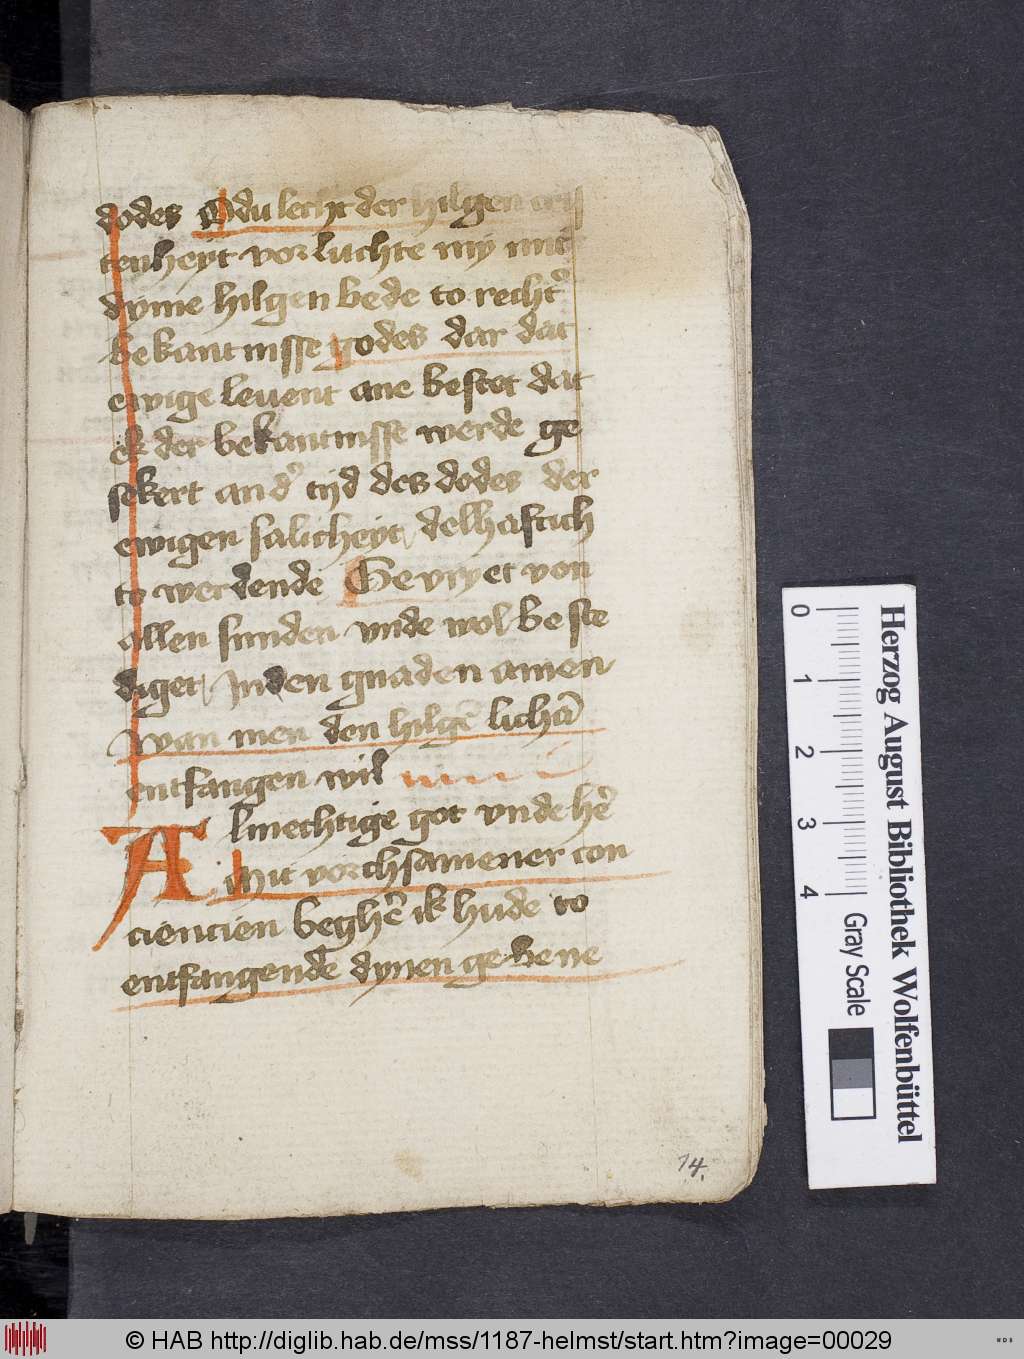 dodes O du lecht der hilgen cris
tenheyt vorluchte my mit
dyme hilgen bede to recht᷑
bekantnisse godes dar dat
ewige levent ane bestet dat
ek der bekantnisse werde ge
sekert an d᷑ tijd des dodes der
ewigen salicheyt delhaftich
to werdende Gevryet von
allen sunden vnde wol beste
diget / Jn den gnaden amen
Wan men den hilgē lichā
entfangen wil
Almechtige got vnde he᷑
mit vorchsamener con
ciencien beghe᷑ ik hude to
entfangende dynen gebene
14.
0 1 2 3 4
Gray Scale
Herzog August Bibliothek Wolfenbüttel
© HAB http://diglib.hab.de/mss/1187-helmst/start.htm?image=00029
WDB